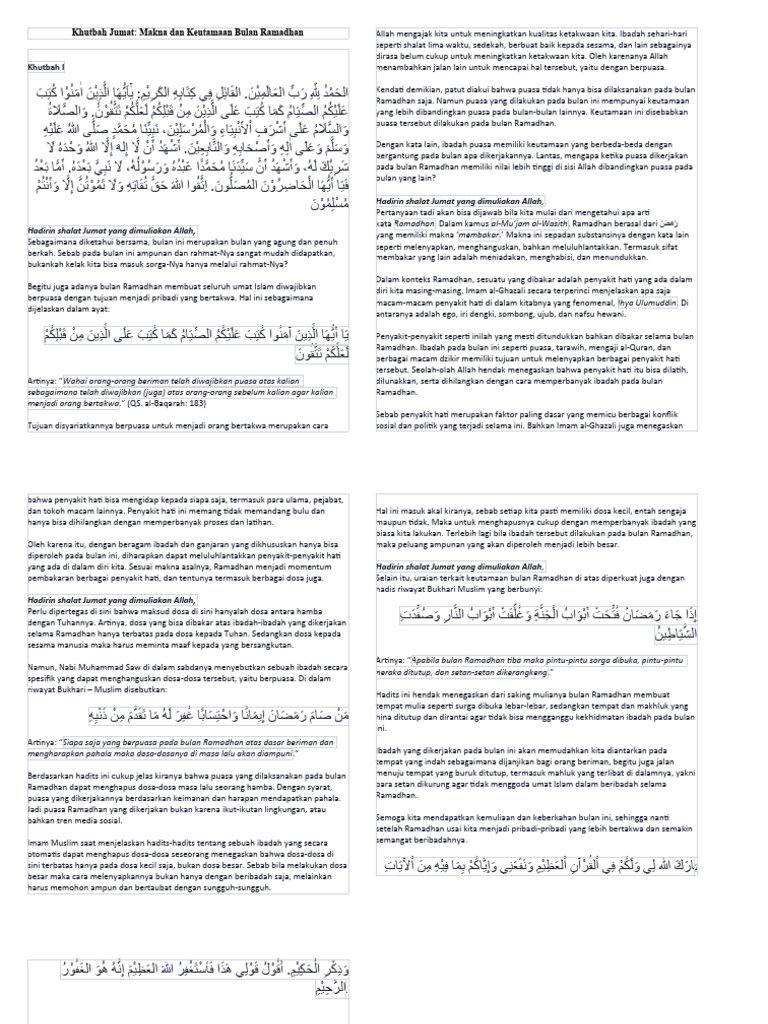 Khutbah Jumat: Makna dan Keutamaan Bulan Ramadhan
Khutbah I
الحَمْدُ لِلّٰهِ رَبِّ العَالَمِيْنَ. القَائِلِ فِي كِتَابِهِ الكَرِيْمِ: يٰٓاَيُّهَا الَّذِيْنَ اٰمَنُوْا كُتِبَ
عَلَيْكُمُ الصِّيَامُ كَمَا كُتِبَ عَلَى الَّذِيْنَ مِنْ قَبْلِكُمْ لَعَلَّكُمْ تَتَّقُوْنَ. وَالصَّلَاةُ
وَالسَّلَامُ عَلَى أَشْرَفِ الْأَنْبِيَاءِ وَالْمُرْسَلِيْنَ، نَبِيِّنَا مُحَمَّدٍ صَلَّى اللهُ عَلَيْهِ
وَسَلَّمَ وَعَلَى آلِهِ وَأَصْحَابِهِ وَالتَّابِعِيْنَ. أَشْهَدُ أَنْ لَّا إِلٰهَ إِلَّا اللهُ وَحْدَهُ لَا
شَرِيْكَ لَهُ، وَأَشْهَدُ أَنَّ سَيِّدَنَا مُحَمَّدًا عَبْدُهُ وَرَسُوْلُهُ، لَا نَبِيَّ بَعْدَهُ. أَمَّا بَعْدُ
فَيَا أَيُّهَا الْحَاضِرُوْنَ الْمُصَلُّوْنَ. اِتَّقُوا اللهَ حَقَّ تُقَاتِهِ وَلَا تَمُوْتُنَّ إِلَّا وَأَنْتُمْ
مُسْلِمُوْنَ
Hadirin shalat Jumat yang dimuliakan Allah,
Sebagaimana diketahui bersama, bulan ini merupakan bulan yang agung dan penuh
berkah. Sebab pada bulan ini ampunan dan rahmat-Nya sangat mudah didapatkan,
bukankah kelak kita bisa masuk sorga-Nya hanya melalui rahmat-Nya?
Begitu juga adanya bulan Ramadhan membuat seluruh umat Islam diwajibkan
berpuasa dengan tujuan menjadi pribadi yang bertakwa. Hal ini sebagaimana
dijelaskan dalam ayat:
يَا أَيُّهَا الَّذِينَ آمَنُوا كُتِبَ عَلَيْكُمُ الصِّيَامُ كَمَا كُتِبَ عَلَى الَّذِينَ مِنْ قَبْلِكُمْ
لَعَلَّكُمْ تَتَّقُونَ
Artinya: “Wahai orang-orang beriman telah diwajibkan puasa atas kalian
sebagaimana telah diwajibkan (juga) atas orang-orang sebelum kalian agar kalian
menjadi orang bertakwa.” (QS. al-Baqarah: 183)
Tujuan disyariatkannya berpuasa untuk menjadi orang bertakwa merupakan cara
Allah mengajak kita untuk meningkatkan kualitas ketakwaan kita. Ibadah sehari-hari
seperti shalat lima waktu, sedekah, berbuat baik kepada sesama, dan lain sebagainya
dirasa belum cukup untuk meningkatkan ketakwaan kita. Oleh karenanya Allah
menambahkan jalan lain untuk mencapai hal tersebut, yaitu dengan berpuasa.
Kendati demikian, patut diakui bahwa puasa tidak hanya bisa dilaksanakan pada bulan
Ramadhan saja. Namun puasa yang dilakukan pada bulan ini mempunyai keutamaan
yang lebih dibandingkan puasa pada bulan-bulan lainnya. Keutamaan ini disebabkan
puasa tersebut dilakukan pada bulan Ramadhan.
Dengan kata lain, ibadah puasa memiliki keutamaan yang berbeda-beda dengan
bergantung pada bulan apa dikerjakannya. Lantas, mengapa ketika puasa dikerjakan
pada bulan Ramadhan menjadi memiliki nilai lebih tinggi di sisi Allah dibandingkan puasa pada
bulan yang lain?
Hadirin shalat Jumat yang dimuliakan Allah,
Pertanyaan tadi akan bisa dijawab bila kita mulai dari mengetahui apa arti
kata Ramadhan. Dalam kamus al-Mu’jam al-Wasith, Ramadhan berasal dari رَمَضَ
yang memiliki makna ‘membakar.’ Makna ini sepadan substansinya dengan kata lain
seperti melenyapkan, menghanguskan, bahkan meluluhlantakkan. Termasuk sifat
membakar yang lain adalah meniadakan, menghabisi, dan menundukkan.
Dalam konteks Ramadhan, sesuatu yang dibakar adalah penyakit hati yang ada dalam
diri kita masing-masing. Imam al-Ghazali secara terperinci menjelaskan apa saja
macam-macam penyakit hati di dalam kitabnya yang fenomenal, Ihya Ulumuddin. Di
antaranya adalah ego, iri dengki, sombong, ujub, dan nafsu hewani.
Penyakit-penyakit seperti inilah yang mesti ditundukkan bahkan dibakar selama bulan
Ramadhan. Ibadah pada bulan ini seperti puasa, tarawih, mengaji al-Quran, dan
berbagai macam dzikir memiliki tujuan untuk melenyapkan berbagai penyakit hati
tersebut. Seolah-olah Allah hendak menegaskan bahwa penyakit hati itu bisa dilatih,
dilunakkan, serta dihilangkan dengan cara memperbanyak ibadah pada bulan
Ramadhan.
Sebab penyakit hati merupakan faktor paling dasar yang memicu berbagai konflik
sosial dan politik yang terjadi selama ini. Bahkan Imam al-Ghazali juga menegaskan
bahwa penyakit hati bisa mengidap kepada siapa saja, termasuk para ulama, pejabat,
dan tokoh macam lainnya. Penyakit hati ini memang tidak memandang bulu dan
hanya bisa dihilangkan dengan memperbanyak proses dan latihan.
Oleh karena itu, dengan beragam ibadah dan ganjaran yang dikhususkan hanya bisa
diperoleh pada bulan ini, diharapkan dapat meluluhlantakkan penyakit-penyakit hati
yang ada di dalam diri kita. Sesuai makna asalnya, Ramadhan menjadi momentum
pembakaran berbagai penyakit hati, dan tentunya termasuk berbagai dosa juga.
Hadirin shalat Jumat yang dimuliakan Allah,
Perlu dipertegas di sini bahwa maksud dosa di sini hanyalah dosa antara hamba
dengan Tuhannya. Artinya, dosa yang bisa dibakar atas ibadah-ibadah yang dikerjakan
selama Ramadhan hanya terbatas pada dosa kepada Tuhan. Sedangkan dosa kepada
sesama manusia maka harus meminta maaf kepada yang bersangkutan.
Namun, Nabi Muhammad Saw di dalam sabdanya menyebutkan sebuah ibadah secara
spesifik yang dapat menghanguskan dosa-dosa tersebut, yaitu berpuasa. Di dalam
riwayat Bukhari – Muslim disebutkan:
مَنْ صَامَ رَمَضَانَ إِيمَانًا وَاحْتِسَابًا غُفِرَ لَهُ مَا تَقَدَّمَ مِنْ ذَنْبِهِ
Artinya: “Siapa saja yang berpuasa pada bulan Ramadhan atas dasar beriman dan
mengharapkan pahala maka dosa-dosanya di masa lalu akan diampuni.”
Berdasarkan hadits ini cukup jelas kiranya bahwa puasa yang dilaksanakan pada bulan
Ramadhan dapat menghapus dosa-dosa masa lalu seorang hamba. Dengan syarat,
puasa yang dikerjakannya berdasarkan keimanan dan harapan mendapatkan pahala.
Jadi puasa Ramadhan yang dikerjakan bukan karena ikut-ikutan lingkungan, atau
bahkan tren media sosial.
Imam Muslim saat menjelaskan hadits-hadits tentang sebuah ibadah yang secara
otomatis dapat menghapus dosa-dosa seseorang menegaskan bahwa dosa-dosa di
sini terbatas hanya pada dosa kecil saja, bukan dosa besar. Sebab bila melakukan dosa
besar maka cara melenyapkannya bukan hanya dengan beribadah saja, melainkan
harus memohon ampun dan bertaubat dengan sungguh-sungguh.
Hal ini masuk akal kiranya, sebab setiap kita pasti memiliki dosa kecil, entah sengaja
maupun tidak. Maka untuk menghapusnya cukup dengan memperbanyak ibadah yang
biasa kita lakukan. Terlebih lagi bila ibadah tersebut dilakukan pada bulan Ramadhan,
maka peluang ampunan yang akan diperoleh menjadi lebih besar.
Hadirin shalat Jumat yang dimuliakan Allah,
Selain itu, uraian terkait keutamaan bulan Ramadhan di atas diperkuat juga dengan
hadis riwayat Bukhari Muslim yang berbunyi:
إِذَا جَاءَ رَمَضَانُ فُتِّحَتْ أَبْوَابُ الْجَنَّةِ وَغُلِّقَتْ أَبْوَابُ النَّارِ وَصُفِّدَتِ
الشَّيَاطِينُ
Artinya: “Apabila bulan Ramadhan tiba maka pintu-pintu sorga dibuka, pintu-pintu
neraka ditutup, dan setan-setan dikerangkeng.”
Hadits ini hendak menegaskan dari saking mulianya bulan Ramadhan membuat
tempat mulia seperti surga dibuka lebar-lebar, sedangkan tempat dan makhluk yang
hina ditutup dan dirantai agar tidak bisa mengganggu kekhidmatan ibadah pada bulan
ini.
Ibadah yang dikerjakan pada bulan ini akan memudahkan kita diantarkan pada
tempat yang indah sebagaimana dijanjikan bagi orang beriman, begitu juga jalan
menuju tempat yang buruk ditutup, termasuk makluk yang terlibat di dalamnya, yakni
para setan dikurung agar tidak menggoda umat Islam dalam beribadah selama
Ramadhan.
Semoga kita mendapatkan kemuliaan dan keberkahan bulan ini, sehingga nanti
setelah Ramadhan usai kita menjadi pribadi-pribadi yang lebih bertakwa dan semakin
semangat beribadahnya.
بَارَكَ الله لِي وَلَكُمْ فِي اْلقُرْآنِ اْلعَظِيْمِ وَنَفَعَنِي وَإِيَّاكُمْ بِمَا فِيْهِ مِنَ اْلآيَاتِ
وَذِكْرِ الْحَكِيْمِ. أَقُوْلُ قَوْلِي هَذَا فَأَسْتَغْفِرُ اللهَ العَظِيْمَ إِنَّهُ هُوَ الغَفُوْرُ
الرَّحِيْمِ